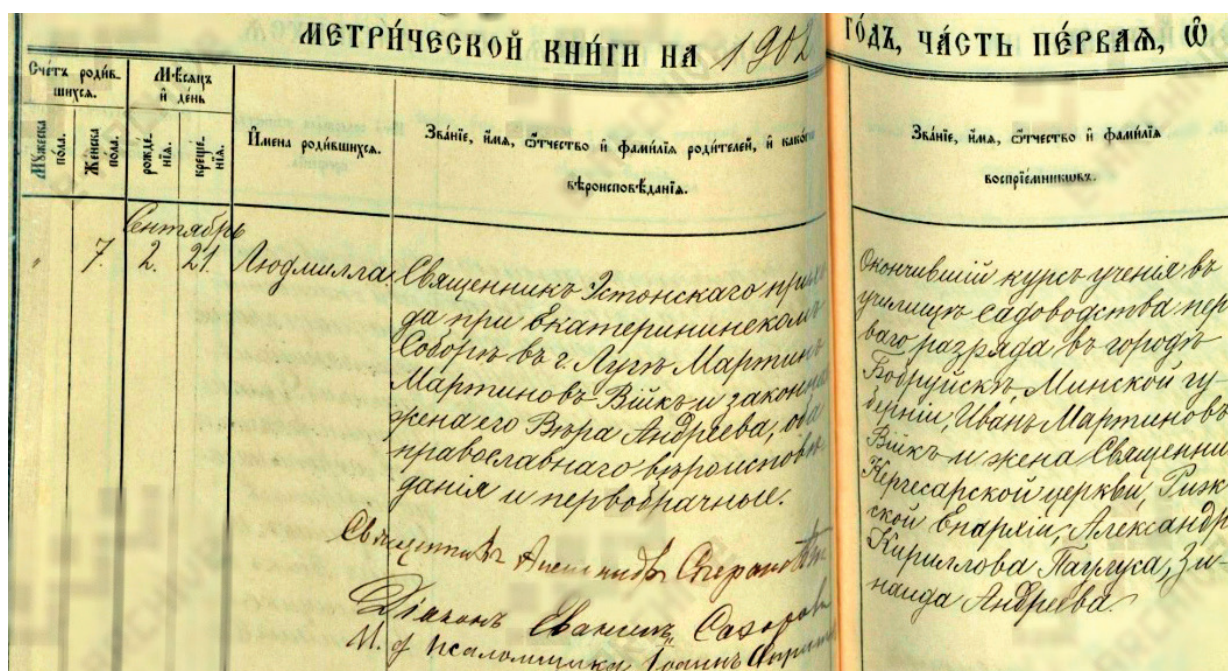 МЕТРИ́ЧЕСКОЙ КНИ́ГИ НА 1902 ГО́ДЪ, ЧА́СТЬ ПЕ́РВАЯ, Ѡ̑
Счéтъ роди́вшихся.
Мѣ́сяцъ и҆ дéнь
Мꙋ́жеска по́ла.
Же́нска по́ла.
рожде́нїя.
креще́нїя.
И҆мена роди́вшихся.
Зва́нїе, и҆́мя, ѻ҆́тчество и҆ фами́лїя роди́телей, и҆ како́гѡ
вѣроисповѣ́данїя.
Зва́нїе, и҆́мя, ѻ҆́тчество и҆ фами́лїя
воспрїе́мникѡвъ.
Сентябрь
" 7. 2. 21. Людмилла.
Священникъ Эстонскаго прихо
да при Екатерининскомъ
Соборѣ въ г. Лугѣ Мартинъ
Мартиновъ Вiйкъ и законная
жена его Вѣра Андреева, оба
православнаго вѣроисповѣ
данiя и первобрачные.
Священникъ Александръ
Дiаконъ Сахаровъ
И. д. псаломщика Iоаннъ
Окончившiй курсъ ученiя въ
училищѣ садоводства пер
ваго разряда въ городѣ
Бобруйскѣ, Минской гу-
бернiи, Иванъ Мартиновъ
Вiйкъ и жена Священни
Кергесарской церкви, Риж
ской Епархiи, Александра
Кириллова Паулуса, Зи-
наида Андреева.